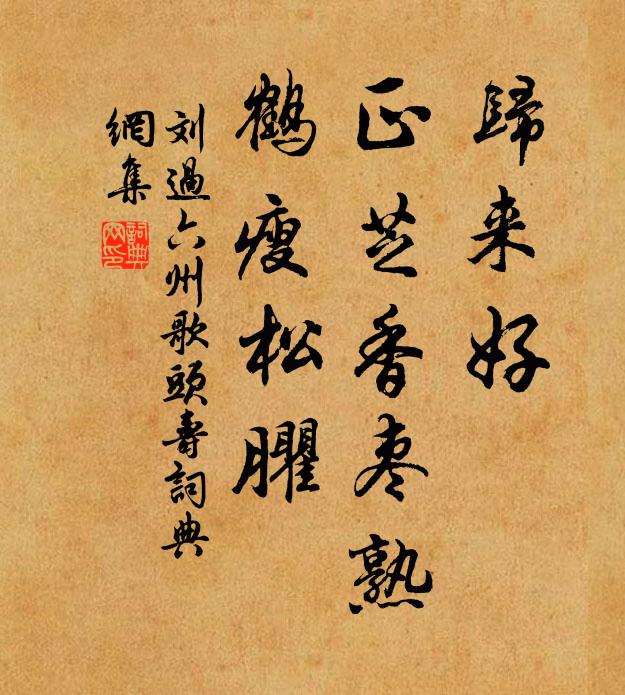 歸来好
正芝香枣熟
鶴瘦松臞
刘過六州歌頭壽詞典
網集
詞典
网印